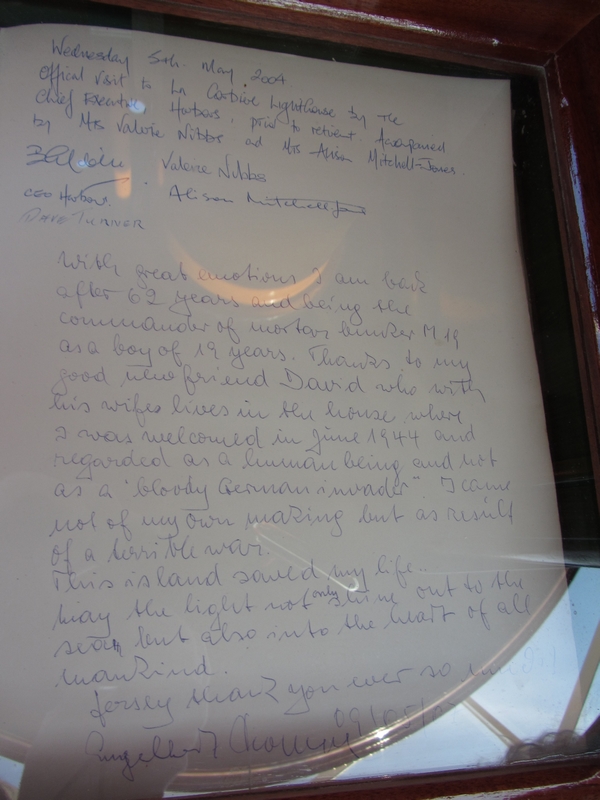 Wednesday 5th. May. 2004
Offical Visit to La Corbière Lighthouse by the
Chief Executive, Harbours, prior to retirent. Accompanied
by Mrs Valerie Nibbs and Mrs Alison Mitchell-Jones.
Valerie Nibbs
CEO Harbours. Alison Mitchell Jones
DAVE TURNER
With great emotions I am back
after 62 years and being the
commander of mortar bunker M 19
as a boy of 19 years. Thanks to my
good friend David who with
his wifes lives in the house where
I was welcomed in June 1944 and
regarded as a human being and not
as a "bloody German invader". I came
not of my own making but as result
of a terrible war.
This island saved my life..
May the light not only shine out to the
sea but also into the heart of all
mankind.
Jersey thank you ever so much!